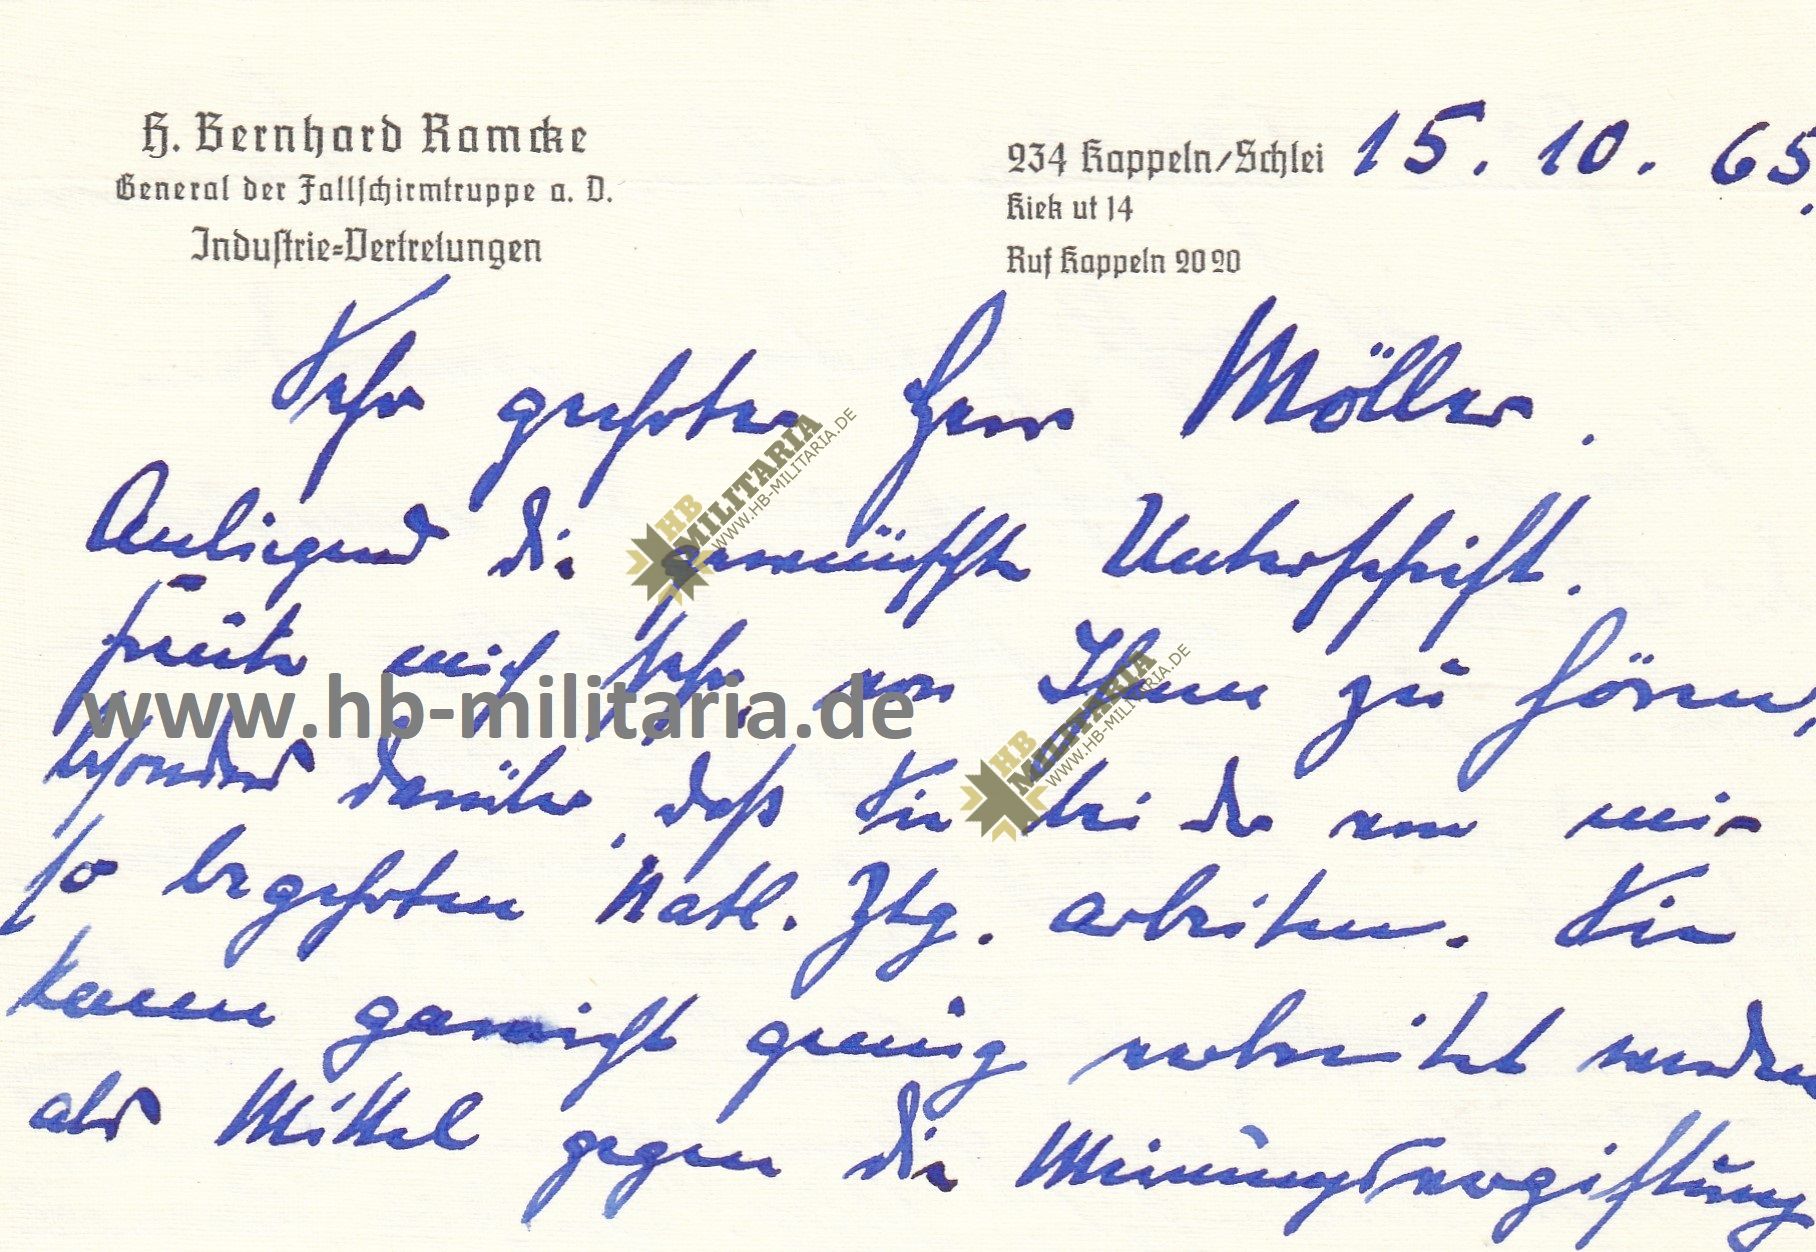 H. Bernhard Ramcke
General der Fallschirmtruppe a. D.
Industrie=Vertretungen
234 Kappeln/Schlei 15. 10. 65.
Kiek ut 14
Ruf Kappeln 20 20
Sehr geehrter Herr Möller.
Anliegend die gewünschte Unterschrift.
freute mich sehr, von Ihnen zu hören,
besonders darüber, daß Sie bei der von mir
so begehrten Natl. Ztg. arbeiten. Sie
kann garnicht genug verbreitet werden
als Mittel gegen die Meinungsvergiftung
HB MILITARIA
WWW.HB-MILITARIA.DE
www.hb-militaria.de
HB MILITARIA
WWW.HB-MILITARIA.DE